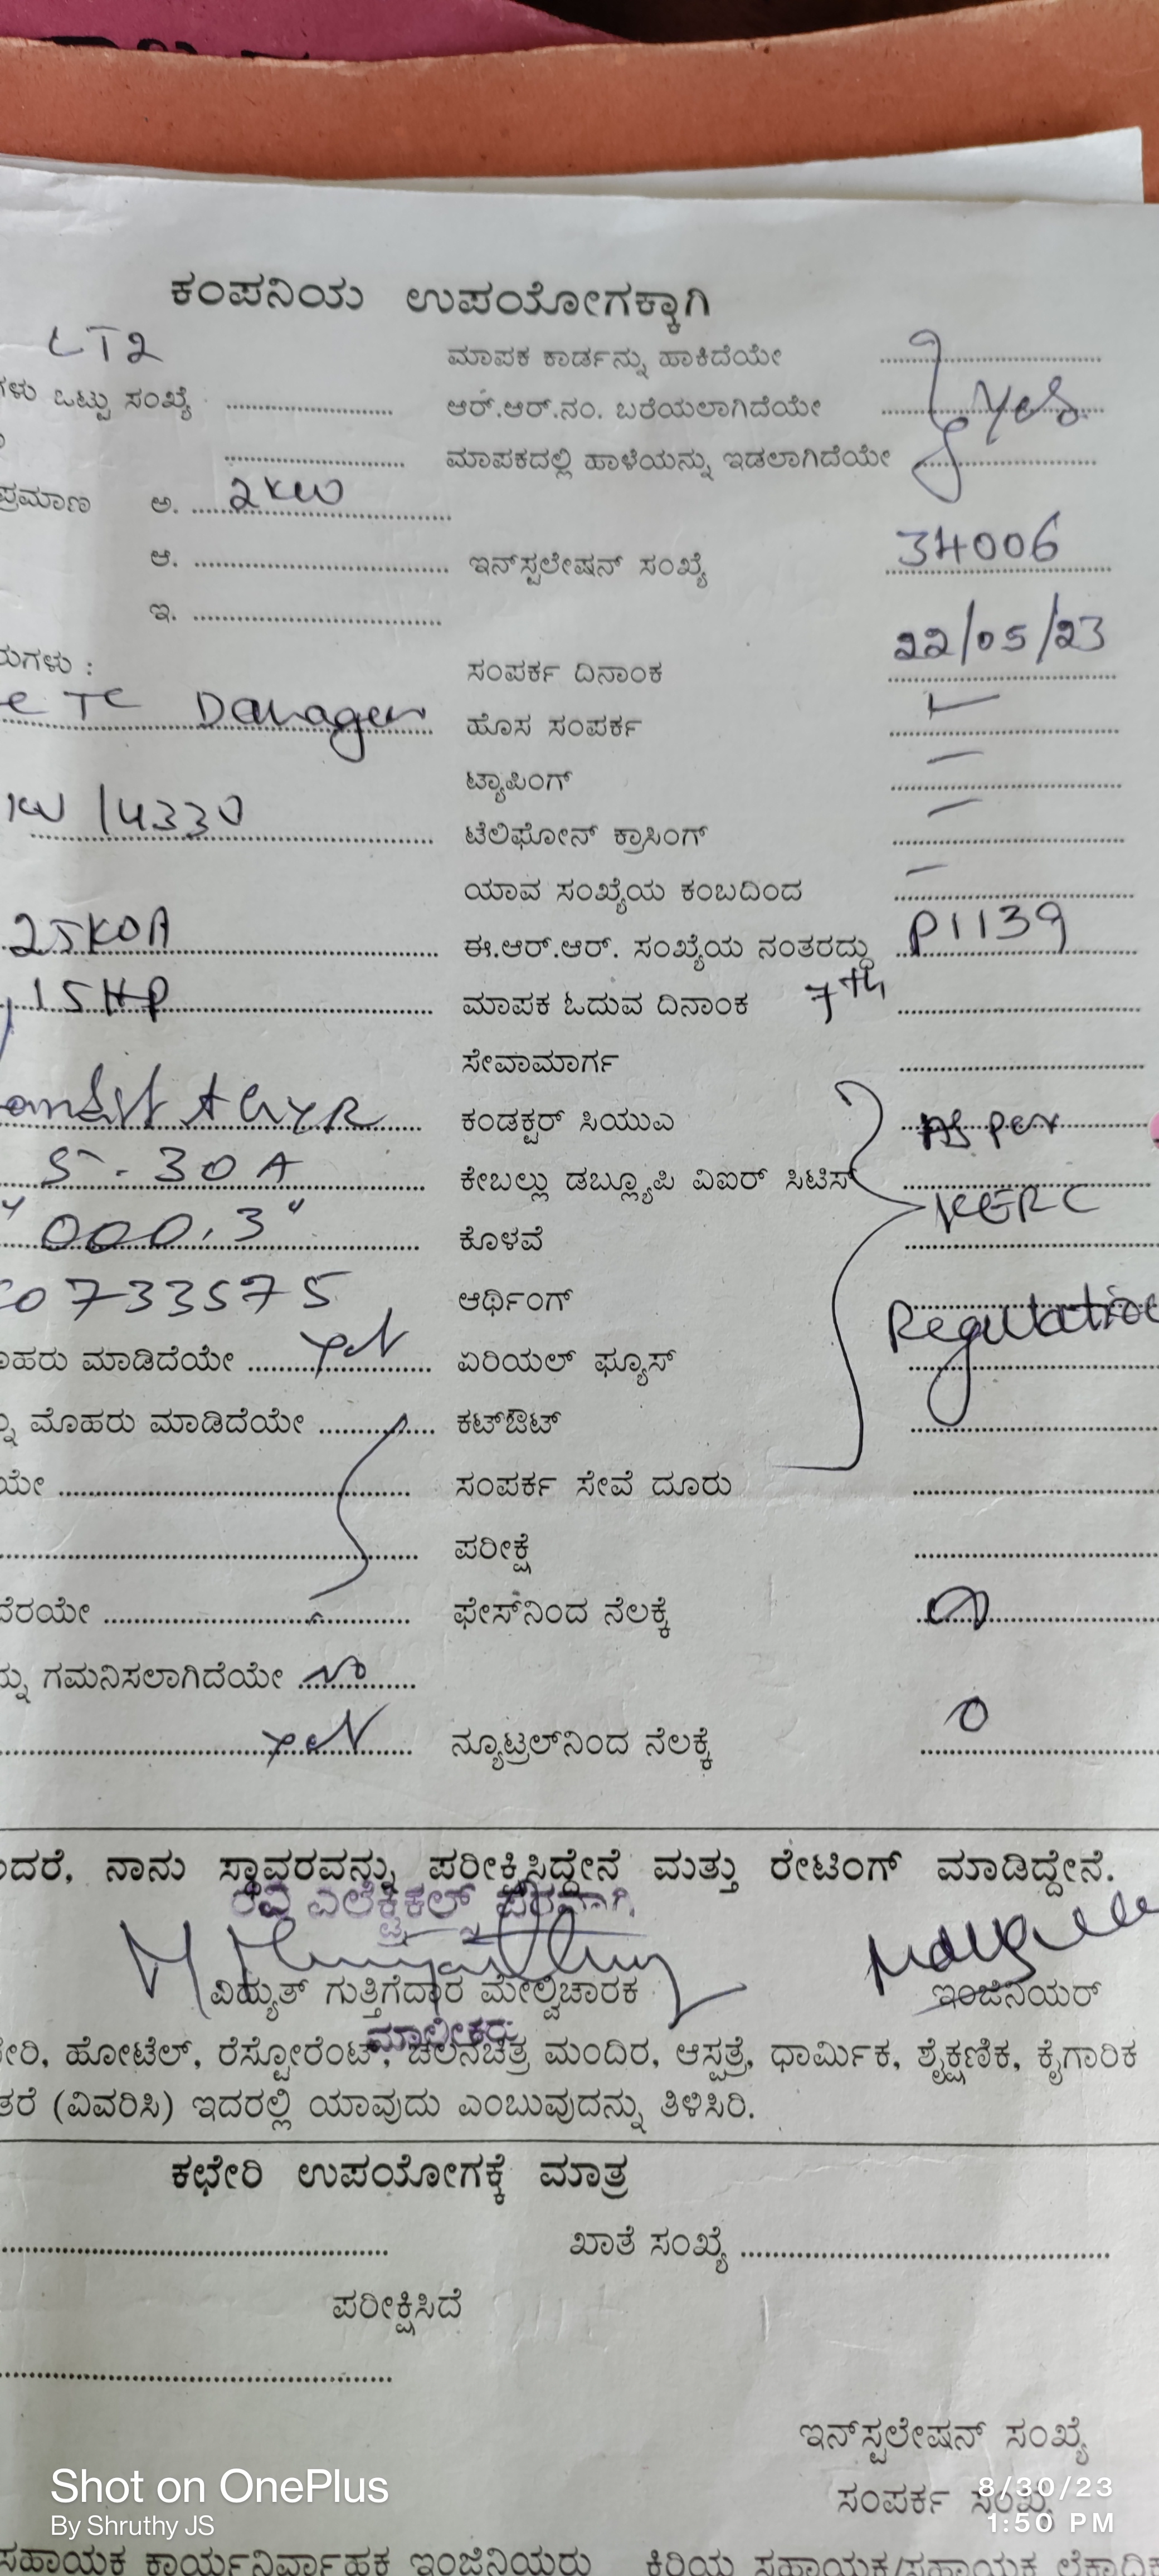 ಕಂಪನಿಯ ಉಪಯೋಗಕ್ಕಾಗಿ
LT2 ಮಾಪಕ ಕಾರ್ಡನ್ನು ಹಾಕಿದೆಯೇ
ಗಳು ಒಟ್ಟು ಸಂಖ್ಯೆ ಆರ್.ಆರ್.ನಂ. ಬರೆಯಲಾಗಿದೆಯೇ Yes
ಮಾಪಕದಲ್ಲಿ ಹಾಳೆಯನ್ನು ಇಡಲಾಗಿದೆಯೇ
ಪ್ರಮಾಣ ಅ. 2KW
ಆ. ಇನ್‌ಸ್ಟಲೇಷನ್ ಸಂಖ್ಯೆ 34006
ಇ.
ಸಂಪರ್ಕ ದಿನಾಂಕ 22/05/23
ಹೊಸ ಸಂಪರ್ಕ
ಟ್ಯಾಪಿಂಗ್ –
14330 ಟೆಲಿಫೋನ್ ಕ್ರಾಸಿಂಗ್ –
ಯಾವ ಸಂಖ್ಯೆಯ ಕಂಬದಿಂದ –
ಈ.ಆರ್.ಆರ್. ಸಂಖ್ಯೆಯ ನಂತರದ್ದು P1139
15HP ಮಾಪಕ ಓದುವ ದಿನಾಂಕ 7th
ಸೇವಾಮಾರ್ಗ
ಕಂಡಕ್ಟರ್ ಸಿಯುಎ As per
5-30A ಕೇಬಲ್ಲು ಡಬ್ಲ್ಯೂಪಿ ವಿಐರ್ ಸಿಟಿಸ್ KERC
"000.3" ಕೊಳವೆ
0733575 ಆರ್ಥಿಂಗ್ Regulation
ಮಾಡಿದೆಯೇ ಏರಿಯಲ್ ಫ್ಯೂಸ್
ಮೊಹರು ಮಾಡಿದೆಯೇ ಕಟ್‌ಔಟ್
ಯೇ ಸಂಪರ್ಕ ಸೇವೆ ದೂರು
ಪರೀಕ್ಷೆ
ದೆರಯೇ ಫೇಸ್‌ನಿಂದ ನೆಲಕ್ಕೆ
ಗಮನಿಸಲಾಗಿದೆಯೇ
ನ್ಯೂಟ್ರಲ್‌ನಿಂದ ನೆಲಕ್ಕೆ 0
ಂದರೆ, ನಾನು ಸ್ಥಾವರವನ್ನು ಪರೀಕ್ಷಿಸಿದ್ದೇನೆ ಮತ್ತು ರೇಟಿಂಗ್ ಮಾಡಿದ್ದೇನೆ.
ರವಿ ಎಲೆಕ್ಟ್ರಿಕಲ್ಸ್ ಪರವಾಗಿ
ವಿದ್ಯುತ್ ಗುತ್ತಿಗೆದಾರ ಮೇಲ್ವಿಚಾರಕ ಇಂಜಿನಿಯರ್
ಮಾಲೀಕರು
ೇರಿ, ಹೋಟೆಲ್, ರೆಸ್ಟೋರೆಂಟ್, ಚಲನಚಿತ್ರ ಮಂದಿರ, ಆಸ್ಪತ್ರೆ, ಧಾರ್ಮಿಕ, ಶೈಕ್ಷಣಿಕ, ಕೈಗಾರಿಕ
ತರೆ (ವಿವರಿಸಿ) ಇದರಲ್ಲಿ ಯಾವುದು ಎಂಬುವುದನ್ನು ತಿಳಿಸಿರಿ.
ಕಛೇರಿ ಉಪಯೋಗಕ್ಕೆ ಮಾತ್ರ
ಖಾತೆ ಸಂಖ್ಯೆ
ಪರೀಕ್ಷಿಸಿದೆ
ಇನ್‌ಸ್ಟಲೇಷನ್ ಸಂಖ್ಯೆ
ಸಂಪರ್ಕ ಸಂಖ್ಯೆ
Shot on OnePlus
By Shruthy JS
8/30/23
1:50 PM
ಸಹಾಯಕ ಕಾರ್ಯನಿರ್ವಾಹಕ ಇಂಜಿನಿಯರು ಕಿರಿಯ ಸಹಾಯಕ/ಸಹಾಯಕ